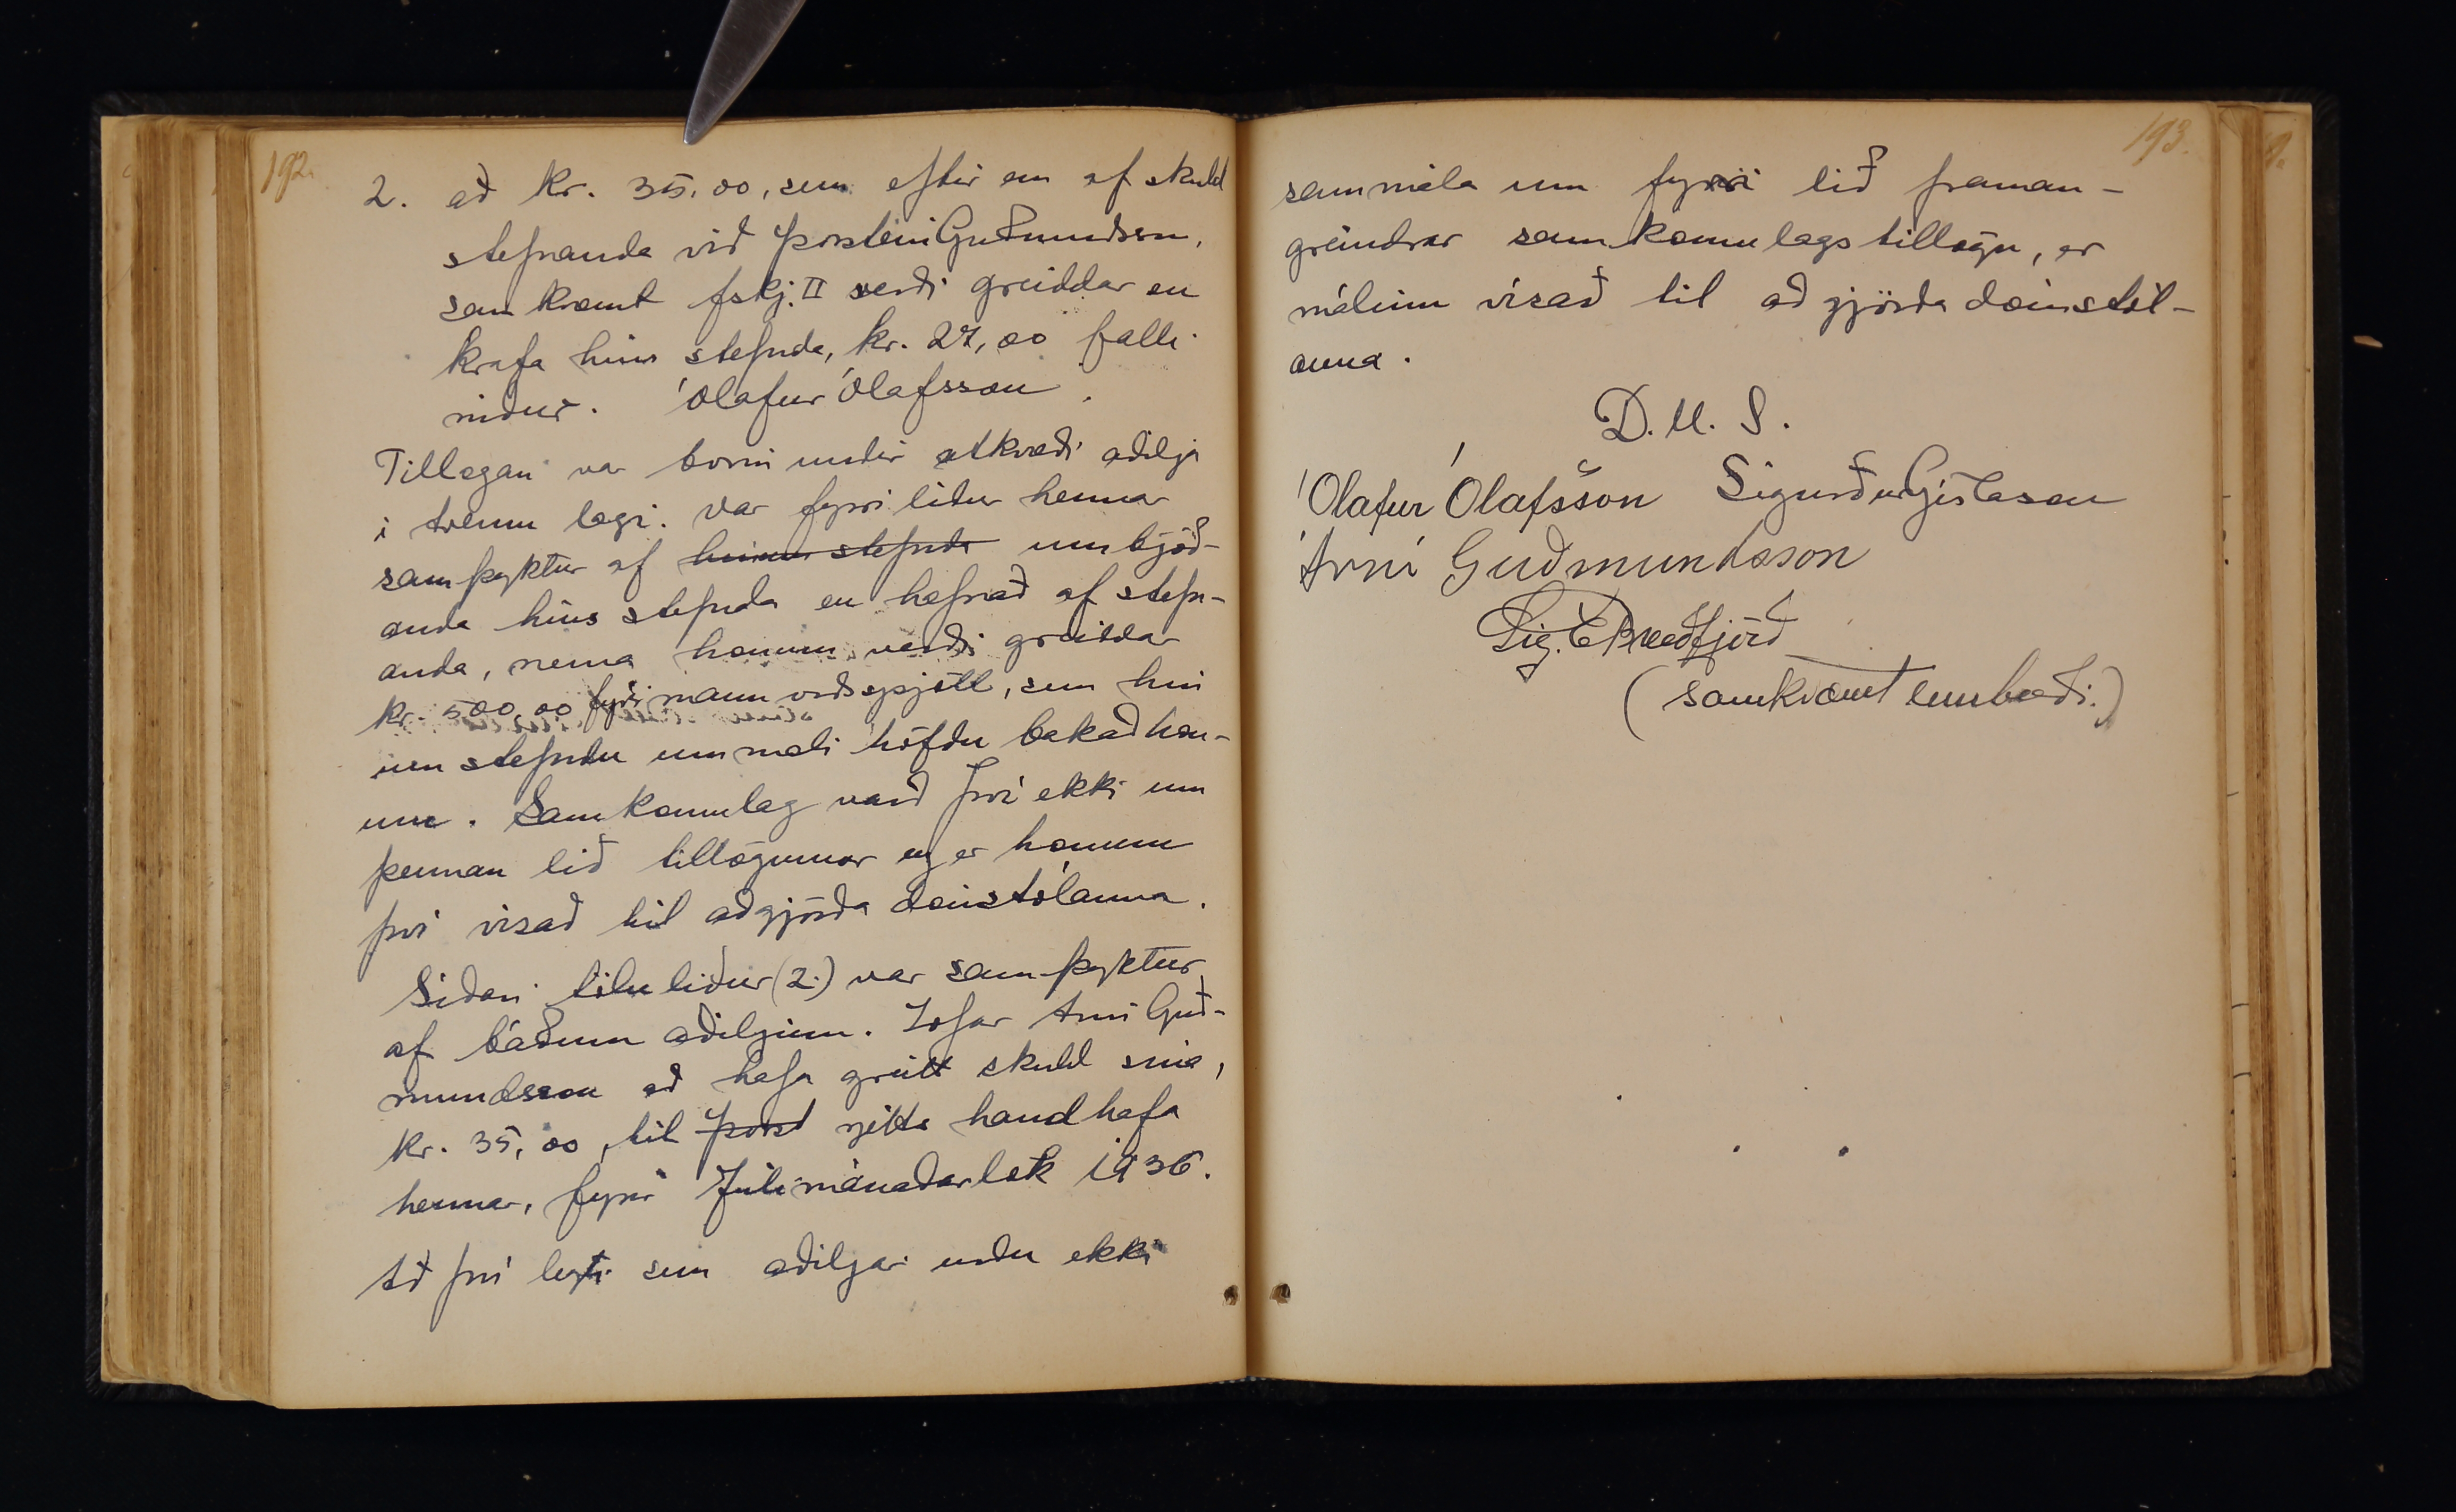 192.
2. að kr. 35,00, sem eftir eru af skuld
stefnanda við Þorstein Guðmundsson,
samkvæmt fskj. II verði greiddar en
krafa hins stefnda, kr. 27,00 falli
niður. Ólafur Ólafsson.
Tillagan var borin undir atkvæði aðilja
í tvennu lagi. Var fyrri liður hennar
samþyktur af hinum stefnda umbjóð-
anda hins stefnda en hafnað af stefn-
anda, nema honum verði greiddar
kr. 500,00 fyrir mannorðsspjöll, sem hin
stefndu ummæli höfðu bakað hon-
um. Samkomulag varð því ekki um
þennan lið tillögunnar og er honum
því vísað til aðgjörða dómstólanna.
Síðari töluliður (2.) var samþyktur
af báðum aðiljum. Lofar Árni Guð-
mundsson að hafa greitt skuld sína,
kr. 35,00, til Þorst rétts handhafa
hennar, fyrir Júlímánaðarlok 1936.
Að því leyti sem aðiljar urðu ekki
193.
sammála um fyrri lið framan-
greindrar samkomulagstillögu, er
málinu vísað til aðgjörða dómstól-
anna.
D.U.S.
Ólafur Ólafsson Sigurður Gíslason
Árni Guðmundsson
Sig. E Breiðfjörð
(samkvæmt umboði.)